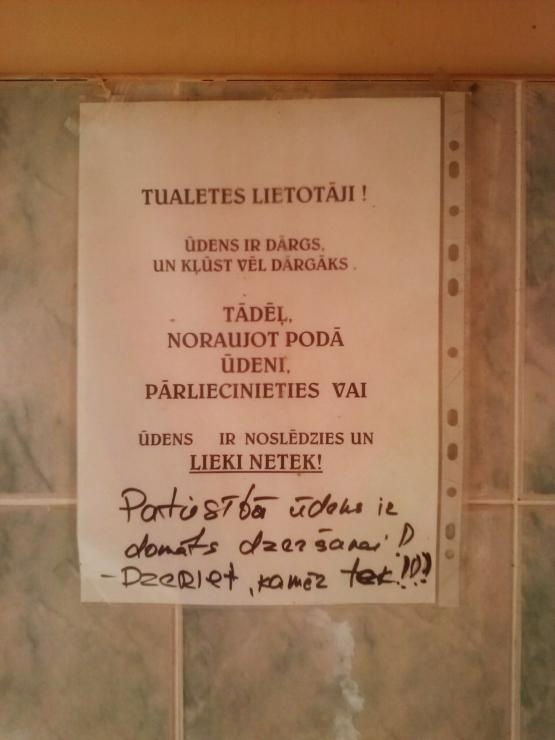 TUALETES LIETOTĀJI !
ŪDENS IR DĀRGS,
UN KĻŪST VĒL DĀRGĀKS .
TĀDĒĻ,
NORAUJOT PODĀ
ŪDENI,
PĀRLIECINIETIES VAI
ŪDENS IR NOSLĒDZIES UN
LIEKI NETEK!
Patiesībā ūdens ir
domāts dzeršanai !
- Dzeriet, kamēr tek!!!